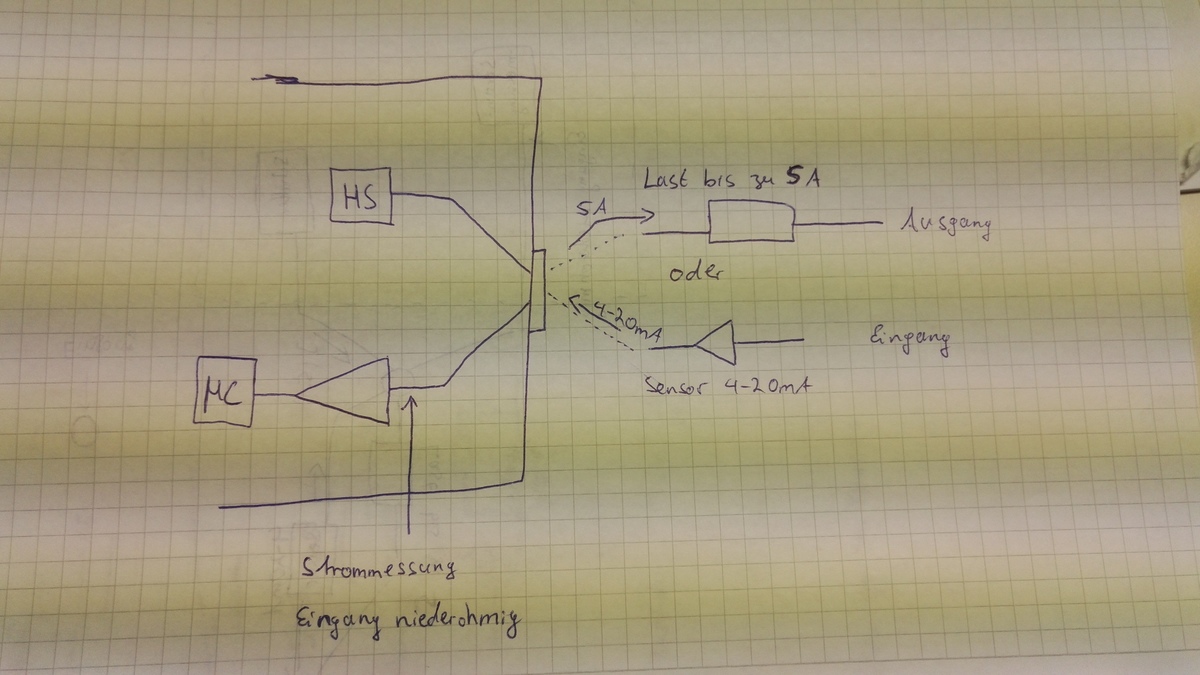 Last bis zu 5A
HS
5A
Ausgang
oder
4-20mA
Eingang
Sensor 4-20mA
µC
Strommessung
Eingang niederohmig